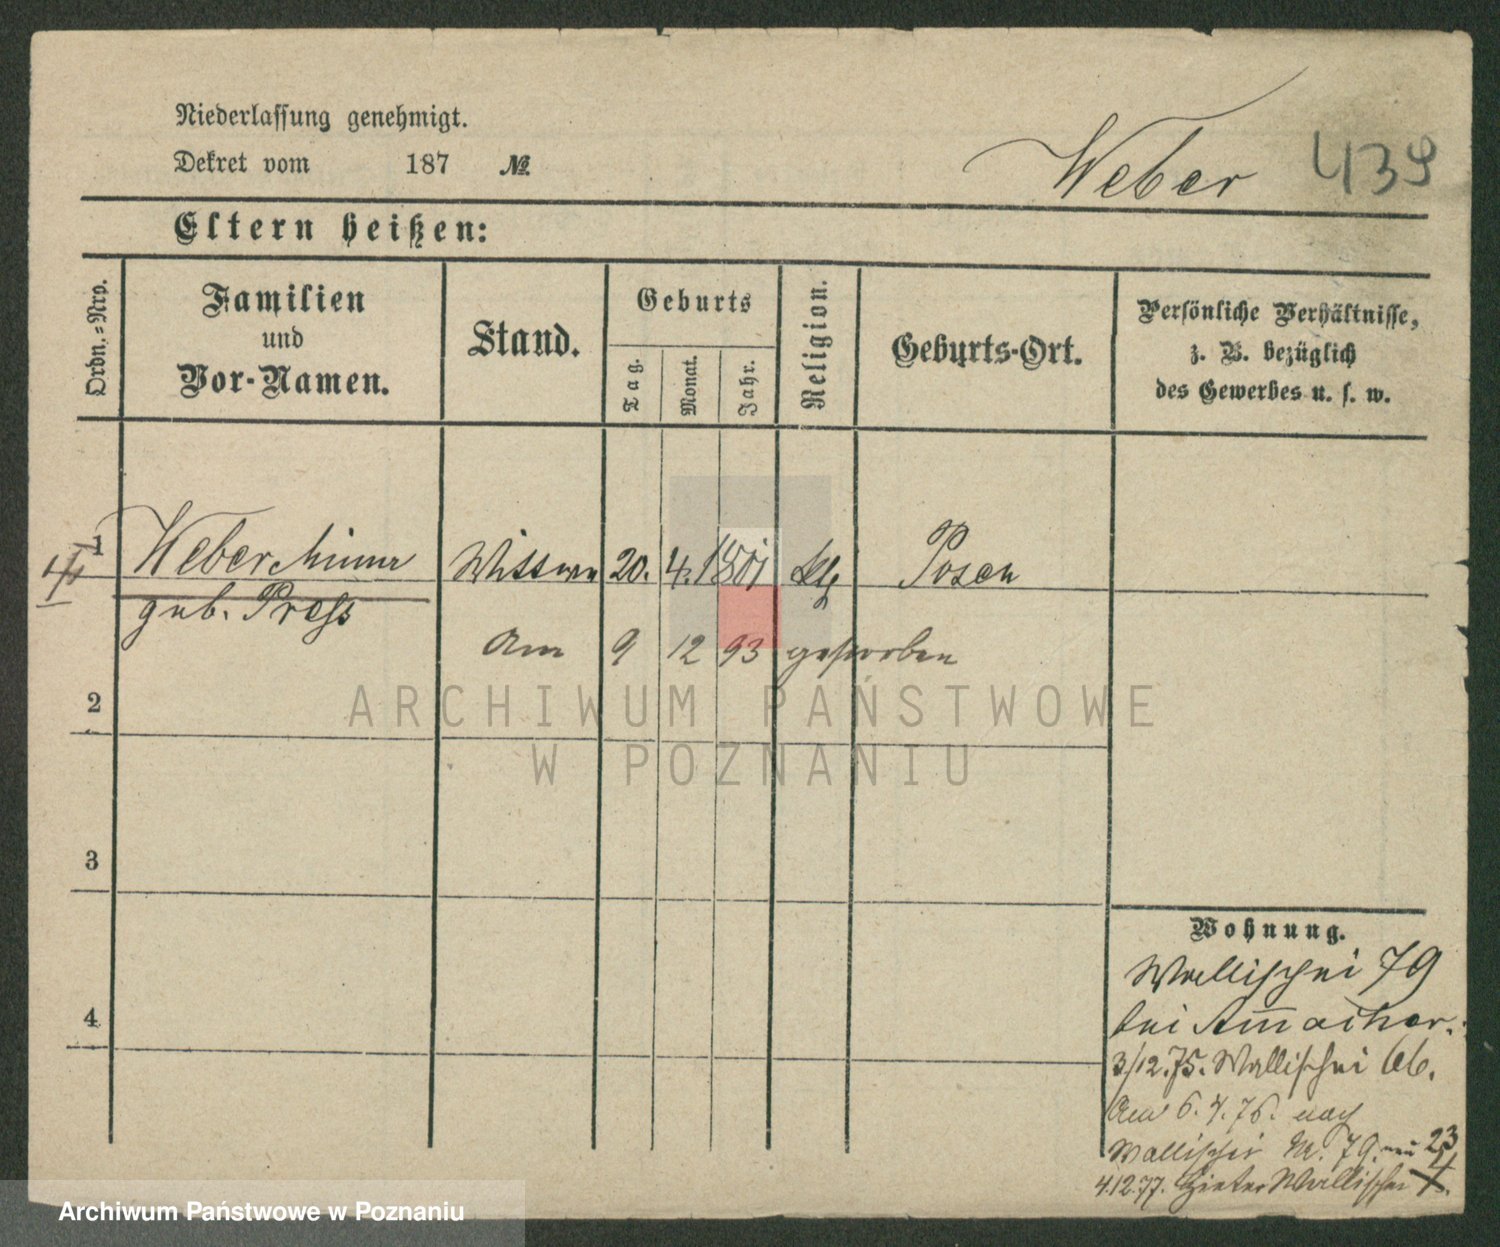 Niederlassung genehmigt.
Dekret vom 187 №
Weber 439
Eltern heißen:
Ordn.-Nro.
Familien
und
Vor-Namen.
Stand.
Geburts
Tag.
Monat.
Jahr.
Religion.
Geburts-Ort.
Persönliche Verhältnisse,
z. B. bezüglich
des Gewerbes u. s. w.
1 Weber Minna Wittwe 20. 4. 1801 kth Posen
geb. Press
Am 9 12 93 gestorben
2
ARCHIWUM PAŃSTWOWE
W POZNANIU
3
4
Wohnung.
Wallischei 79
bei
3/12.75. Wallischei 66.
Am 6.4.76. nach
Wallischei Nr. 79. neu 23
4.12.77. Hinter Wallischei 4.
Archiwum Państwowe w Poznaniu